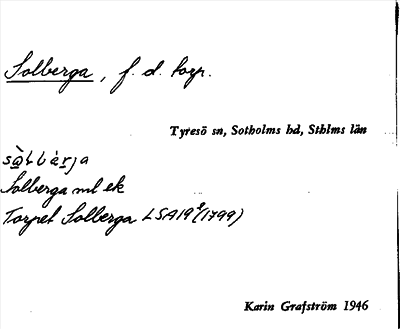 Solberga, f. d. torp.
Tyresö sn, Sotholms hd, Sthlms län
sὰƚbὰrja
Solberga ml ek
Torpet Solberga LSA19²(1799)
Karin Grafström 1946